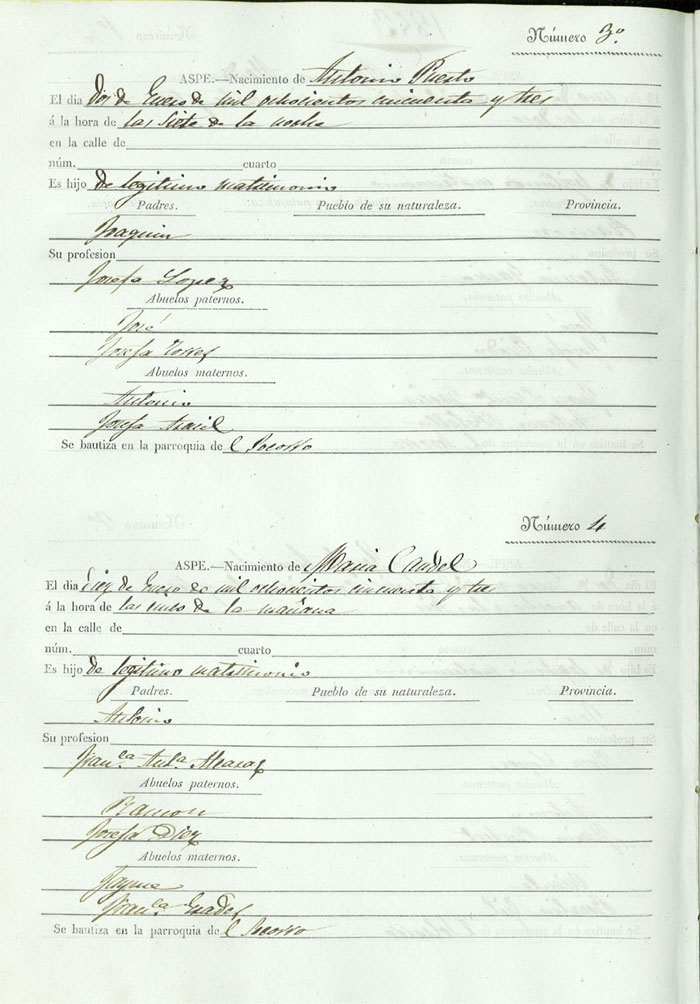 Número 3º
ASPE.—Nacimiento de Antonio Puesto
El dia dos de Enero de mil ochocientos cincuenta y tres
á la hora de las siete de la noche
en la calle de
núm. cuarto
Es hijo de legitimo matrimonio
Padres. Pueblo de su naturaleza. Provincia.
Joaquin
Su profesion
Josefa Lopez
Abuelos paternos.
José
Josefa Torres
Abuelos maternos.
Antonio
Josefa
Se bautiza en la parroquia de l Socorro
Número 4
ASPE.—Nacimiento de Maria Candel
El dia Diez de Enero de mil ochocientos cincuenta y tres
á la hora de las once de la mañana
en la calle de
núm. cuarto
Es hijo de legitimo matrimonio
Padres. Pueblo de su naturaleza. Provincia.
Antonio
Su profesion
Fran.ca Ant.a Alcaraz
Abuelos paternos.
Ramon
Josefa Diez
Abuelos maternos.
Jayme
Fran.ca
Se bautiza en la parroquia de l Socorro